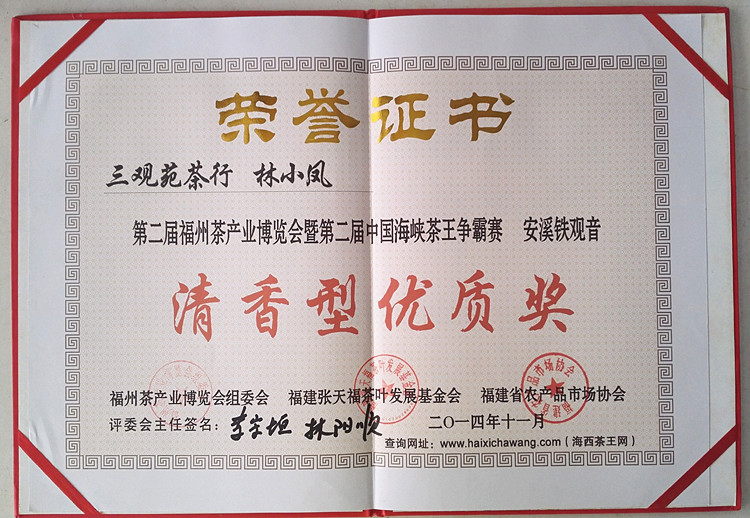 荣誉证书
三观苑茶行 林小凤
第二届福州茶产业博览会暨第二届中国海峡茶王争霸赛 安溪铁观音
清香型优质奖
福州茶产业博览会组委会 福建张天福茶叶发展基金会 福建省农产品市场协会
评委会主任签名：李宗垣 林阳顺 二〇一四年十一月
查询网址：www.haixichawang.com（海西茶王网）
福建省农产品市场协会